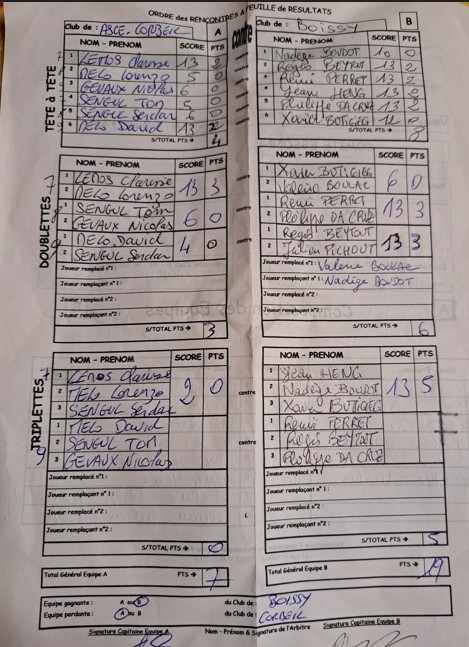 ORDRE des RENCONTRES & FEUILLE de RESULTATS
Club de : ABCE. CORBEIL A
contre
Club de : BOISSY B
TÊTE à TÊTE
NOM - PRENOM SCORE PTS
1 LEMOS Clarisse 13 2
2 MELO Lorenzo 5 0
3 GEVAUX Nicolas 6 0
4 SENGUL Tom 5 0
5 SENGUL Serdar 6 0
6 MELO David 13 2
S/TOTAL PTS → 4
NOM - PRENOM SCORE PTS
1 Nadège BOUDOT 10 0
2 Régis BEYTOUT 13 2
3 Rémi PERRET 13 2
4 Jean HENG 13 2
5 Philippe DA CRUZ 13 2
6 Xavier BUTIGIEG 12 0
S/TOTAL PTS → 8
DOUBLETTES
NOM - PRENOM SCORE PTS
1 LEMOS Clarisse 13 3
2 MELO Lorenzo
1 SENGUL Tom 6 0
2 GEVAUX Nicolas
1 MELO David 4 0
2 SENGUL Serdar
Joueur remplacé n°1 :
Joueur remplaçant n°1 :
Joueur remplacé n°2 :
Joueur remplaçant n°2 :
S/TOTAL PTS → 3
contre
contre
contre
NOM - PRENOM SCORE PTS
1 Xavier BUTIGIEG 6 0
2 Valérie BOULAC
1 Rémi PERRET 13 3
2 Philippe DA CRUZ
1 Régis BEYTOUT 13 3
2 Julien PICHOUT
Joueur remplacé n°1 : Valérie BOULAC
Joueur remplaçant n°1 : Nadège BOUDOT
Joueur remplacé n°2 :
Joueur remplaçant n°2 :
S/TOTAL PTS → 6
TRIPLETTES
NOM - PRENOM SCORE PTS
1 LEMOS Clarisse 2 0
2 MELO Lorenzo
3 SENGUL Serdar
1 MELO David
2 SENGUL TOM
3 GEVAUX Nicolas
Joueur remplacé n°1 :
Joueur remplaçant n°1 :
Joueur remplacé n°2 :
Joueur remplaçant n°2 :
S/TOTAL PTS → 0
contre
contre
NOM - PRENOM SCORE PTS
1 Jean HENG 13 5
2 Nadège BOUDOT
3 Xavier BUTIGIEG
1 Rémi PERRET
2 Régis BEYTOUT
3 Philippe DA CRUZ
Joueur remplacé n°1 :
Joueur remplaçant n°1 :
Joueur remplacé n°2 :
Joueur remplaçant n°2 :
S/TOTAL PTS → 5
Total Général Equipe A PTS → 7
Total Général Equipe B PTS → 19
Equipe gagnante : A ou B du Club de : BOISSY
Equipe perdante : A ou B du Club de : CORBEIL
Signature Capitaine Equipe A
Nom - Prénom & Signature de l'Arbitre
Signature Capitaine Equipe B